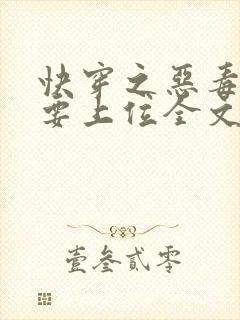 快穿之惡毒
要上位全文
壹叁贰零